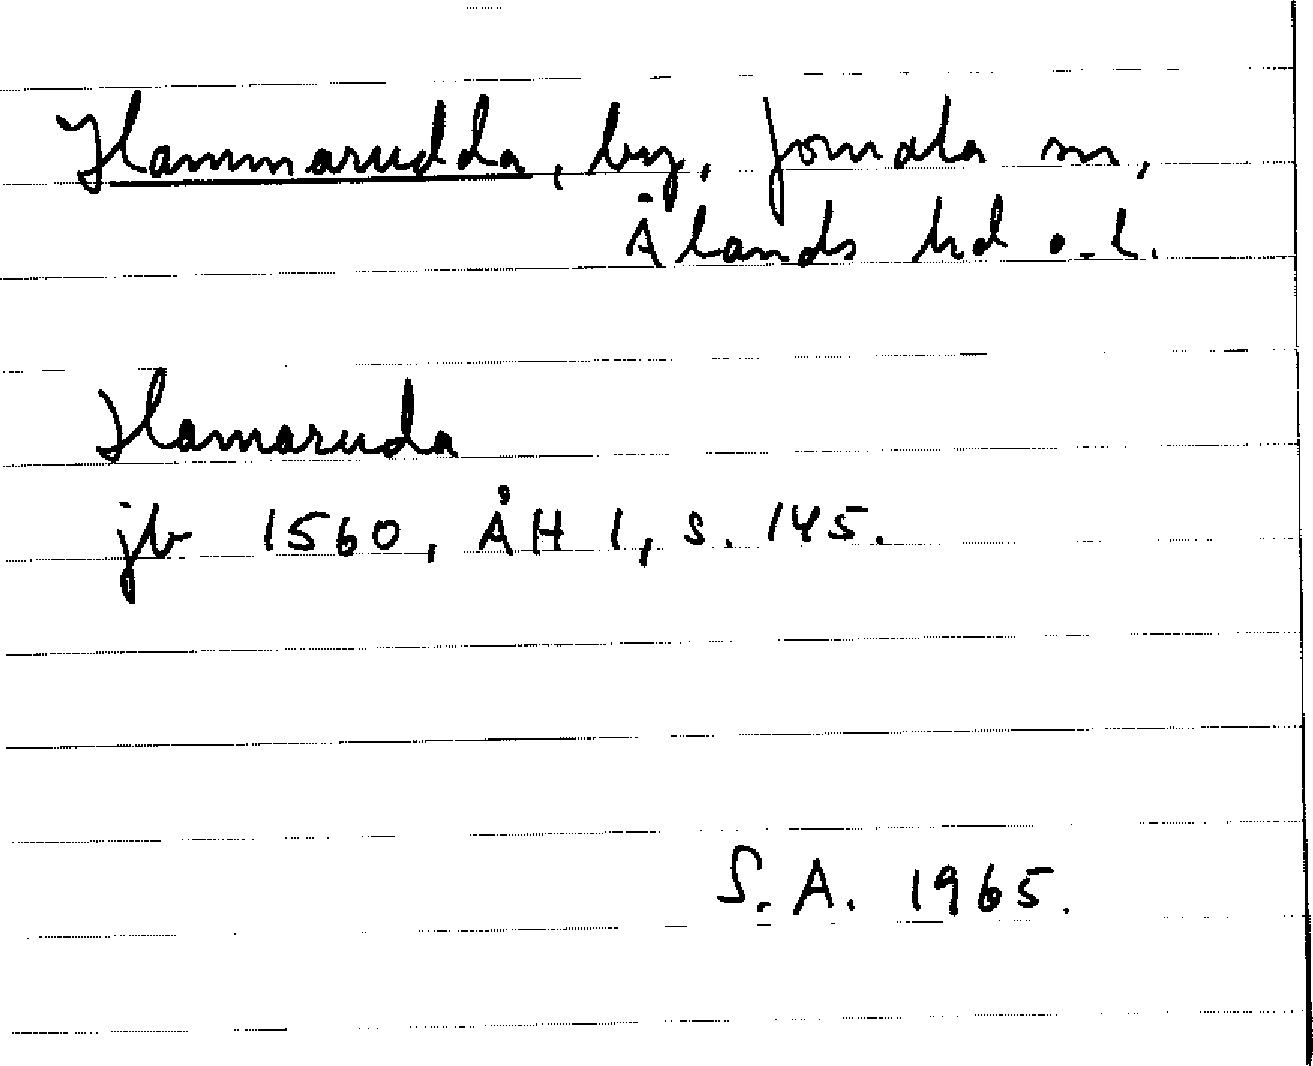 Hammarudda, by, Jomala sn,
Ålands hd o. l.
Hamaruda
jb 1560, ÅH 1, s. 145.
S. A. 1965.